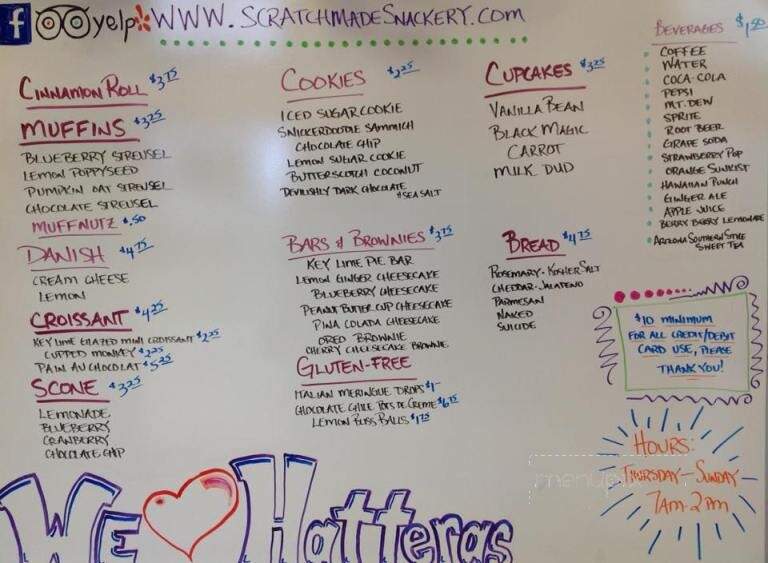 f yelp WWW.SCRATCHMADESNACKERY.COM
CINNAMON ROLL $3.75
MUFFINS $3.25
BLUEBERRY STREUSEL
LEMON POPPYSEED
PUMPKIN OAT STREUSEL
CHOCOLATE STREUSEL
MUFFNUTZ $.50
DANISH $4.75
CREAM CHEESE
LEMON
CROISSANT $4.25
KEY LIME GLAZED MINI CROISSANT $2.25
CUPPED MONKEY $2.25
PAIN AU CHOCOLAT $5.25
SCONE $3.25
LEMONADE
BLUEBERRY
CRANBERRY
CHOCOLATE CHIP
COOKIES $2.25
ICED SUGAR COOKIE
SNICKERDOODLE SAMMICH
CHOCOLATE CHIP
LEMON SUGAR COOKIE
BUTTERSCOTCH COCONUT
DEVILISHLY DARK CHOCOLATE
& SEA SALT
BARS & BROWNIES $3.75
KEY LIME PIE BAR
LEMON GINGER CHEESECAKE
BLUEBERRY CHEESECAKE
PEANUT BUTTER CUP CHEESECAKE
PINA COLADA CHEESECAKE
OREO BROWNIE
CHERRY CHEESECAKE BROWNIE
GLUTEN-FREE
ITALIAN MERINGUE DROPS $1-
CHOCOLATE CHILE POTS DE CREME $6.75
LEMON BLISS BALLS $1.75
CUPCAKES $3.25
VANILLA BEAN
BLACK MAGIC
CARROT
MILK DUD
BREAD $4.75
ROSEMARY-KOSHER SALT
CHEDDAR-JALAPENO
PARMESAN
NAKED
SUICIDE
BEVERAGES $1.50
COFFEE
WATER
COCA-COLA
PEPSI
MT. DEW
SPRITE
ROOT BEER
GRAPE SODA
STRAWBERRY POP
ORANGE SUNKIST
HAWAIIAN PUNCH
GINGER ALE
APPLE JUICE
BERRY BERRY LEMONADE
ARIZONA SOUTHERN STYLE
SWEET TEA
$10 MINIMUM
FOR ALL CREDIT/DEBIT
CARD USE, PLEASE
THANK YOU!
HOURS:
THURSDAY-SUNDAY
7AM-2PM
WE Hatteras